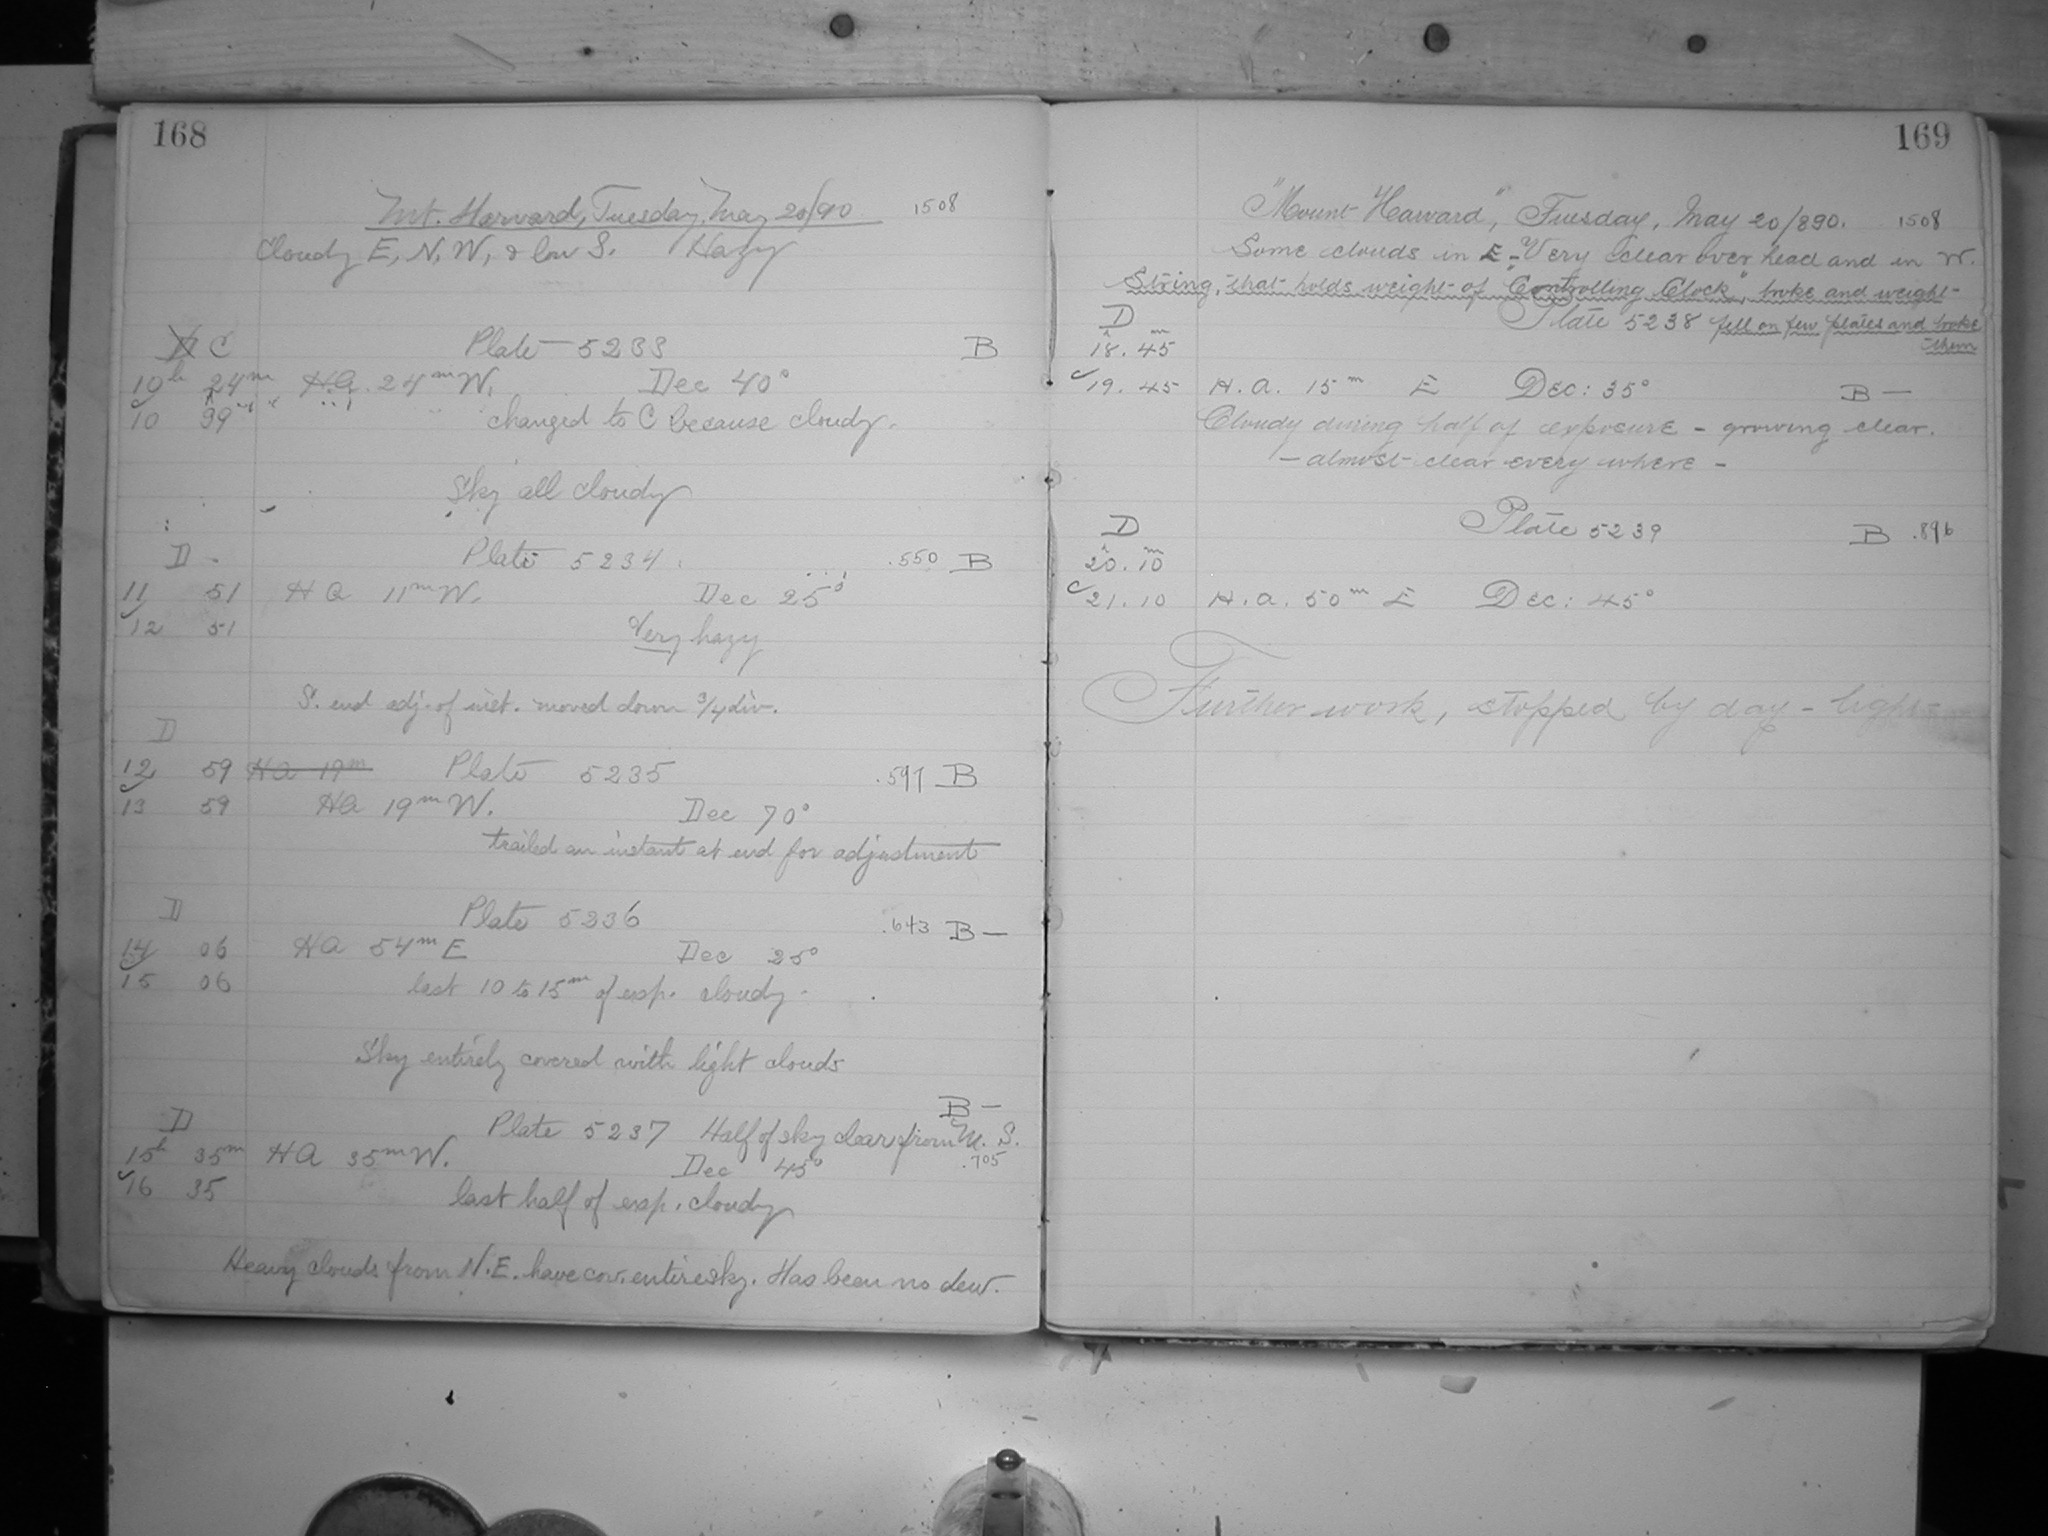 168
Mt. Harvard, Tuesday, May 20/90 1508
Cloudy E, N, W, & low S. Hazy
D C Plate 5233 B
10h 24m HA. 24m W. Dec 40°
10 39 changed to C because cloudy.
Sky all cloudy
D Plate 5234 .550 B
11 51 HA 11m W. Dec 25°
12 51 Very hazy
S. end adj. of inst. moved down 3/4 div.
D
12 59 HA 19m Plate 5235 .597 B
13 59 HA 19m W. Dec 70°
trailed an instant at end for adjustment
D Plate 5236 .643 B —
14 06 HA 54m E Dec 25°
15 06 last 10 to 15m of exp. cloudy.
Sky entirely covered with light clouds
B —
D Plate 5237 Half of sky clear from S.
15h 35m HA 35m W. Dec 45° .705
16 35 last half of exp. cloudy
Heavy clouds from N.E. have cov. entire sky. Has been no dew.
169
"Mount Haward", Tuesday, May 20/890. 1508
Some clouds in E - Very clear over head and in W.
String, that holds weight of "Controlling Clock", broke and weight
D Plate 5238 fell on few plates and broke
18h. 45m them
19. 45 H.a. 15m E Dec: 35° B —
Cloudy during half of exposure - growing clear.
- almost clear every where -
D Plate 5239 B .896
20h. 10m
21. 10 H.a. 50m E Dec: 45°
Further work, stopped by day-light-